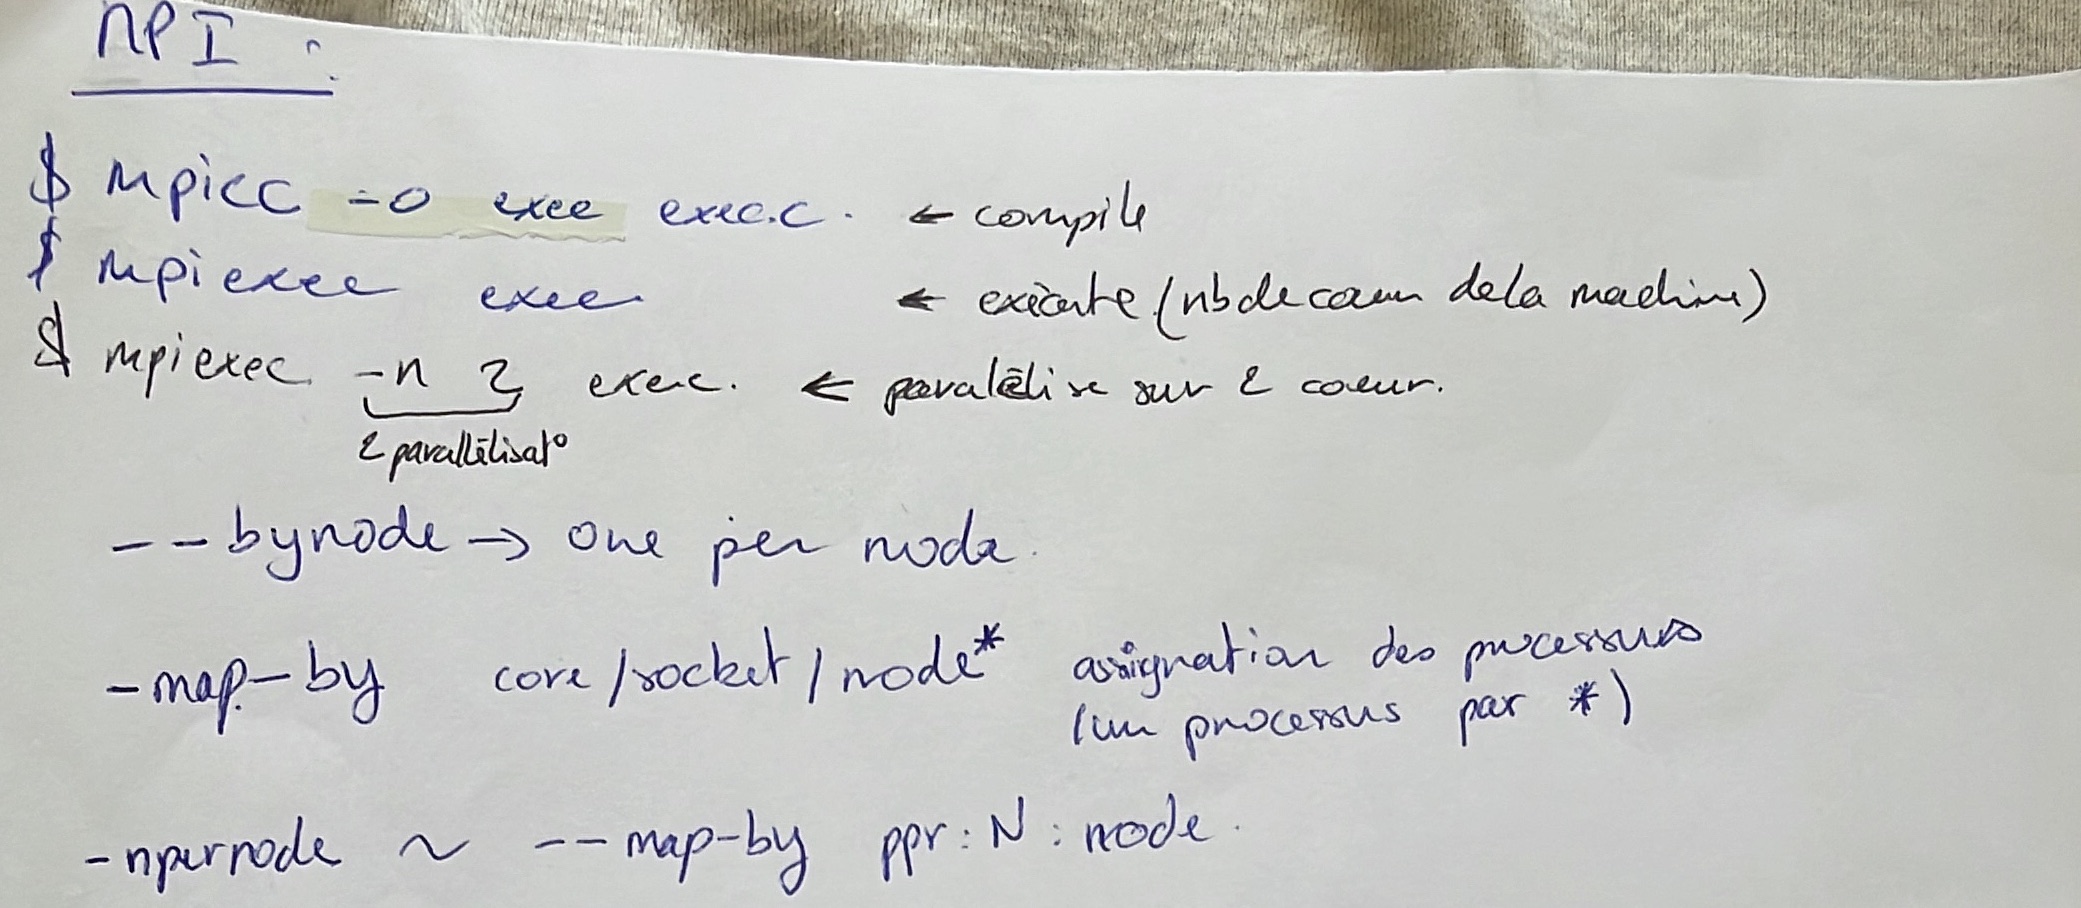 MPI :
$ mpicc -o exec exec.c. ← compile
$ mpiexec exec ← exécute (nb de coeur de la machine)
$ mpiexec -n 2 exec. ← paralélise sur 2 coeur.
2 parallélisat°
--bynode → one per node.
-map-by core/socket/node* assignation des processus
(un processus par *)
-npernode ~ --map-by ppr:N:node.